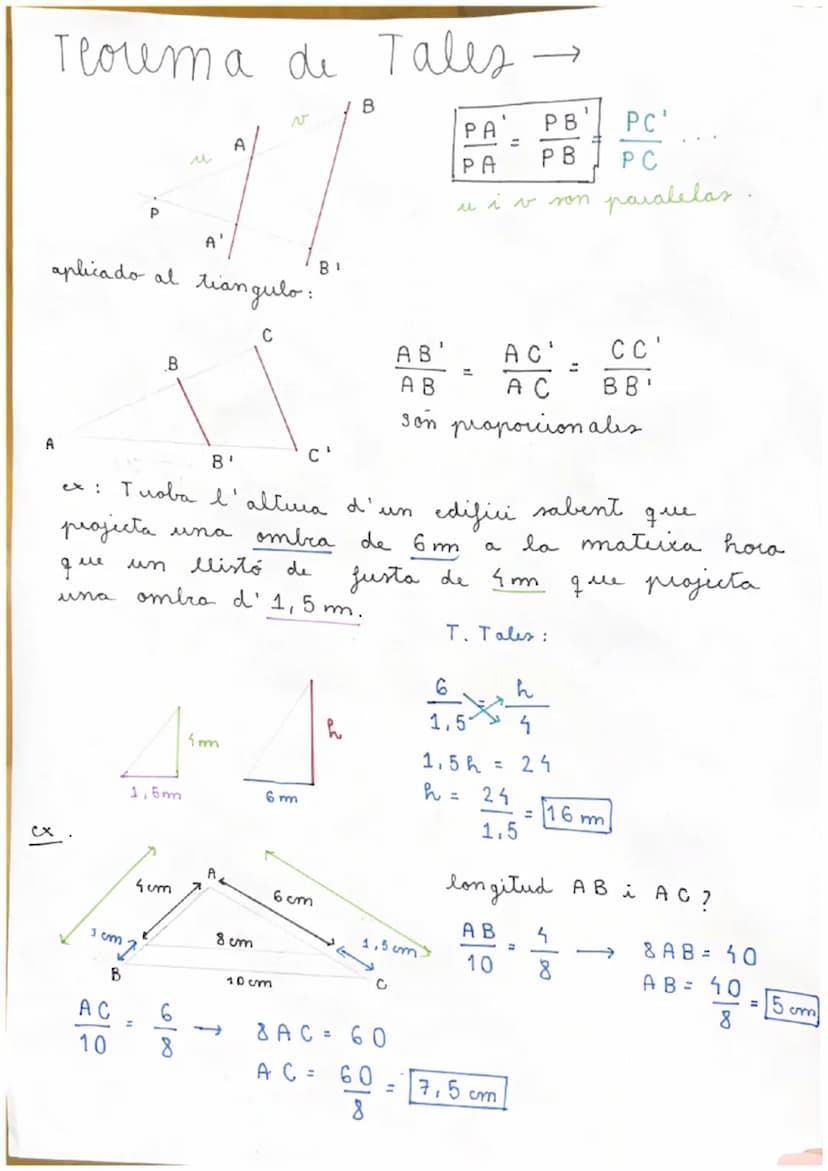 Teorema de Tales →
B
v
A
u
P
A'
B'
PA'/PA = PB'/PB = PC'/PC ...
u i v son paralelas.
aplicado al triangulo:
C
B
A
B'
C'
AB'/AB = AC'/AC = CC'/BB'
són proporcionales
ex: Troba l'altura d'un edifici sabent que
projecta una ombra de 6 m a la mateixa hora
que un llistó de fusta de 4 m que projecta
una ombra d' 1,5 m.
T. Tales:
4 m
1,5 m
h
6 m
6/1,5 = h/4
1,5h = 24
h = 24/1,5 = 16 m
ex.
A
4 cm
6 cm
1 cm
8 cm
1,5 cm
B
10 cm
C
longitud AB i AC?
AB/10 = 4/8 → 8AB = 40
AB = 40/8 = 5 cm
AC/10 = 6/8 → 8AC = 60
AC = 60/8 = 7,5 cm